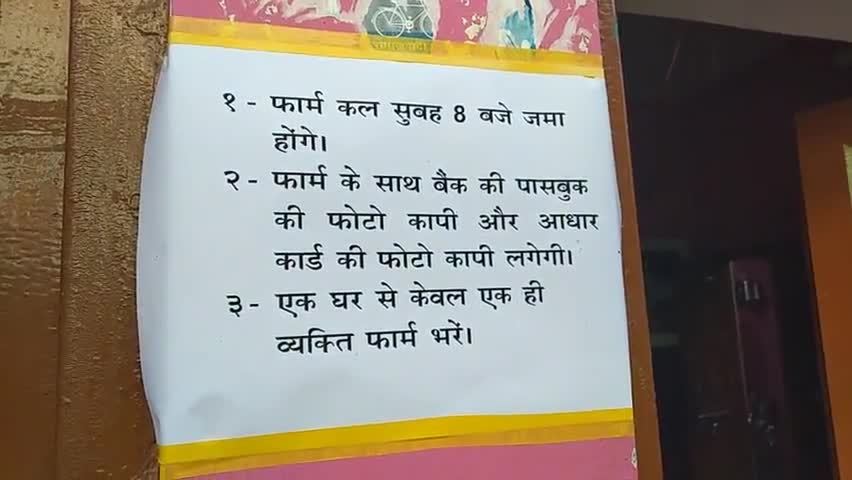 १ - फार्म कल सुबह 8 बजे जमा
होंगे।
२ - फार्म के साथ बैंक की पासबुक
की फोटो कापी और आधार
कार्ड की फोटो कापी लगेगी।
३ - एक घर से केवल एक ही
व्यक्ति फार्म भरें।